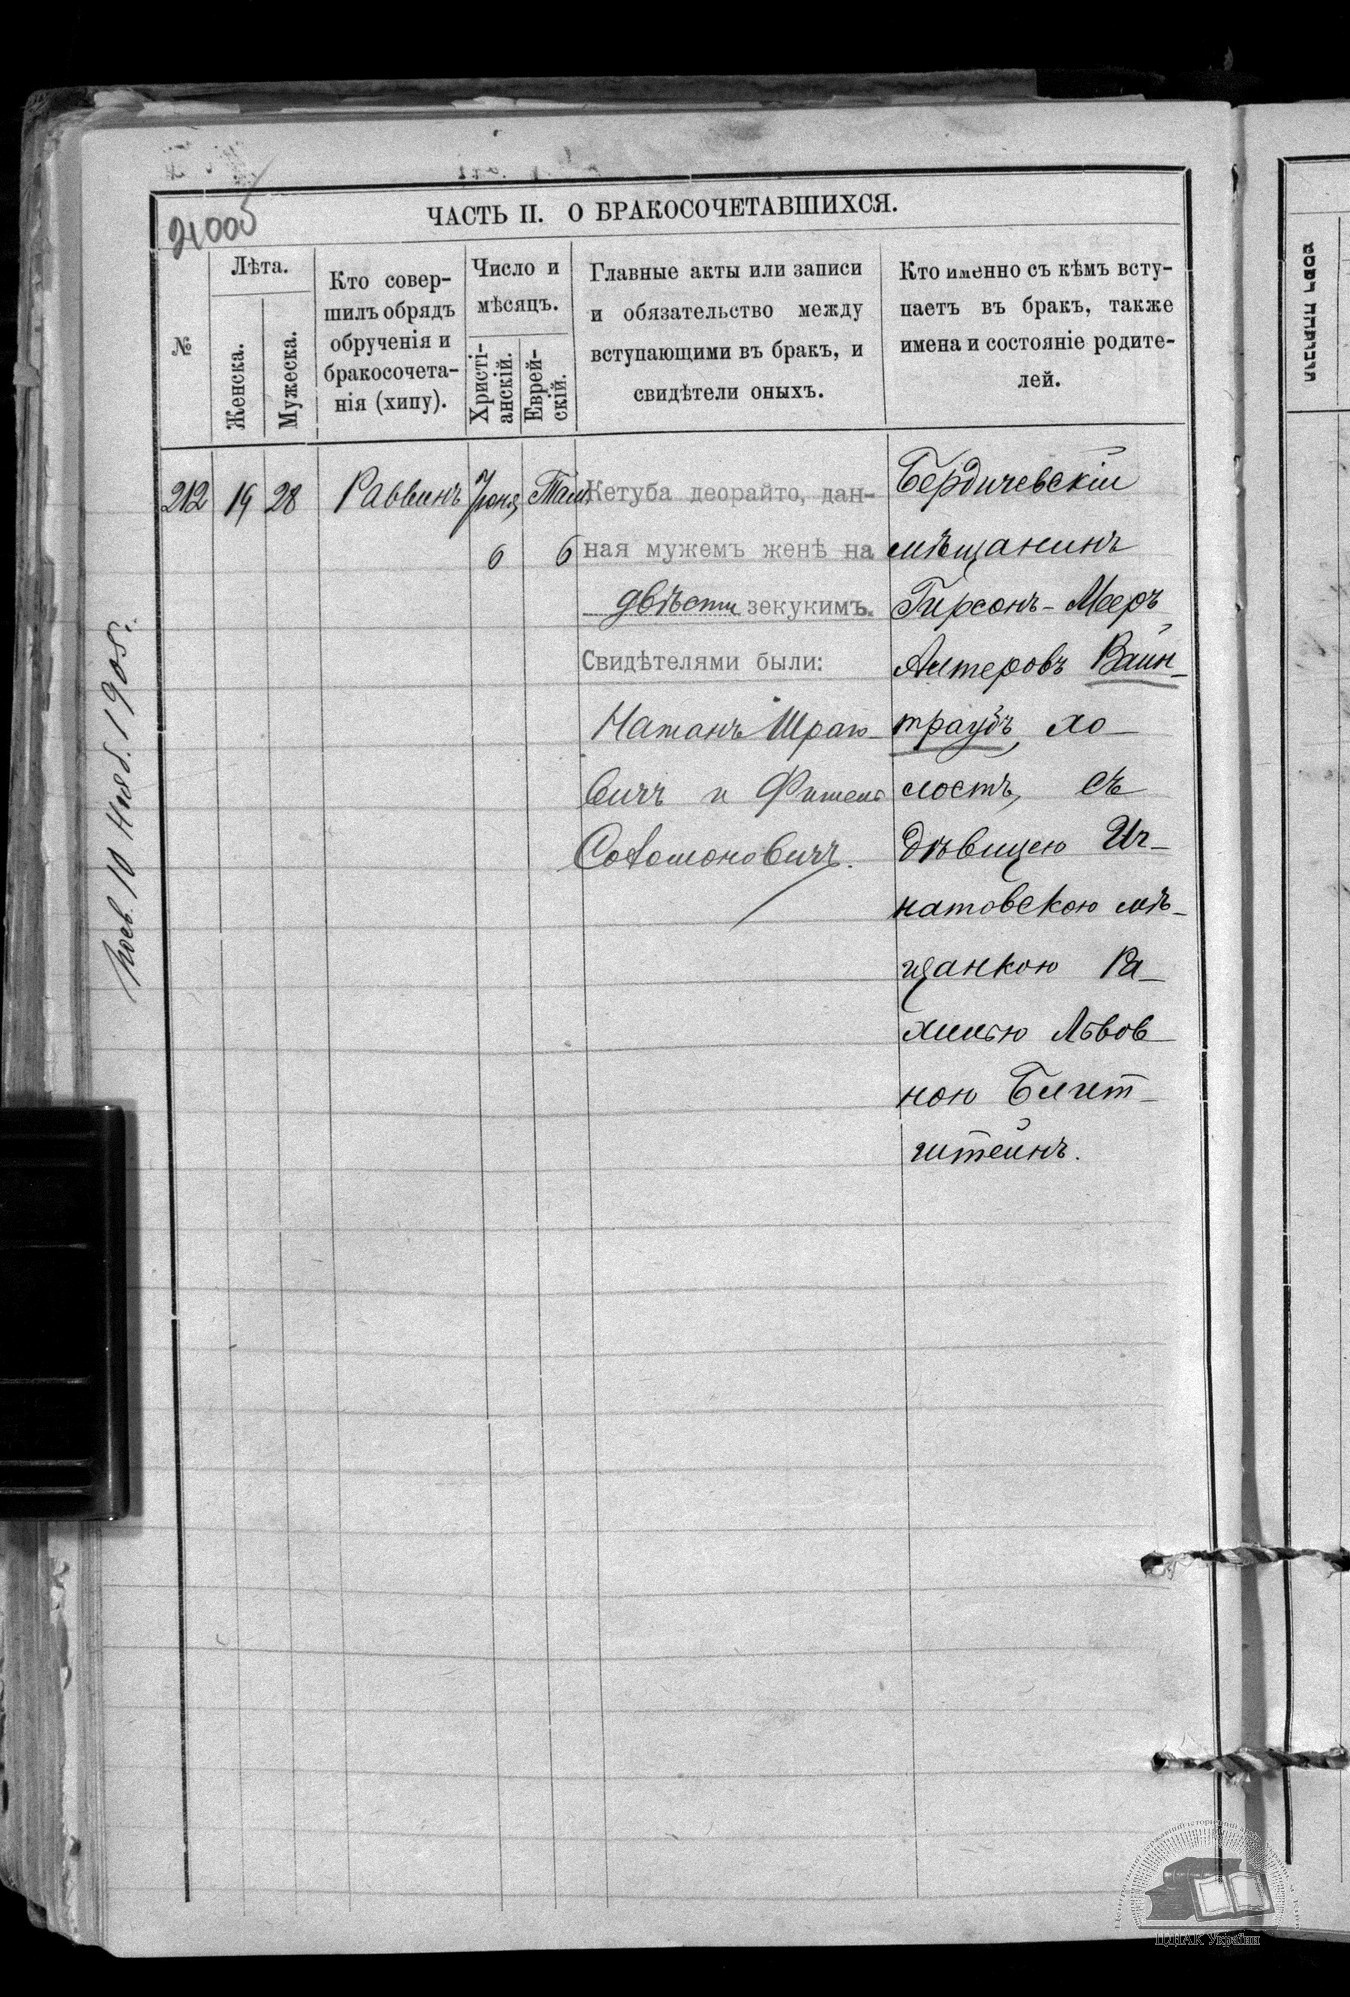 21005
ЧАСТЬ II. О БРАКОСОЧЕТАВШИХСЯ.
№
Лѣта.
Женска.
Мужеска.
Кто совер-
шилъ обрядъ
обрученія и
бракосочета-
нія (хипу).
Число и
мѣсяцъ.
Христі-
анскій.
Еврей-
скій.
Главные акты или записи
и обязательство между
вступающими въ бракъ, и
свидѣтели оныхъ.
Кто именно съ кѣмъ всту-
паетъ въ бракъ, также
имена и состояніе родите-
лей.
212
19
28
Раввинъ
Іюня
6
Там.
6
Кетуба деорайто, дан-
ная мужемъ женѣ на
двѣсти зекукимъ.
Свидѣтелями были:
Натанъ Шраго-
вичъ и Фишель
Соломоновичъ.
Бердичевскій
мѣщанинъ
Гирсонъ-Мееръ
Алтеровъ Вайн-
траубъ, хо-
лостъ, съ
дѣвицею Иг-
натовскою мѣ-
щанкою Ра-
хилью Львов-
ною Блит-
штейнъ.
10 Нояб. 1908 г.
ЦДІАК України